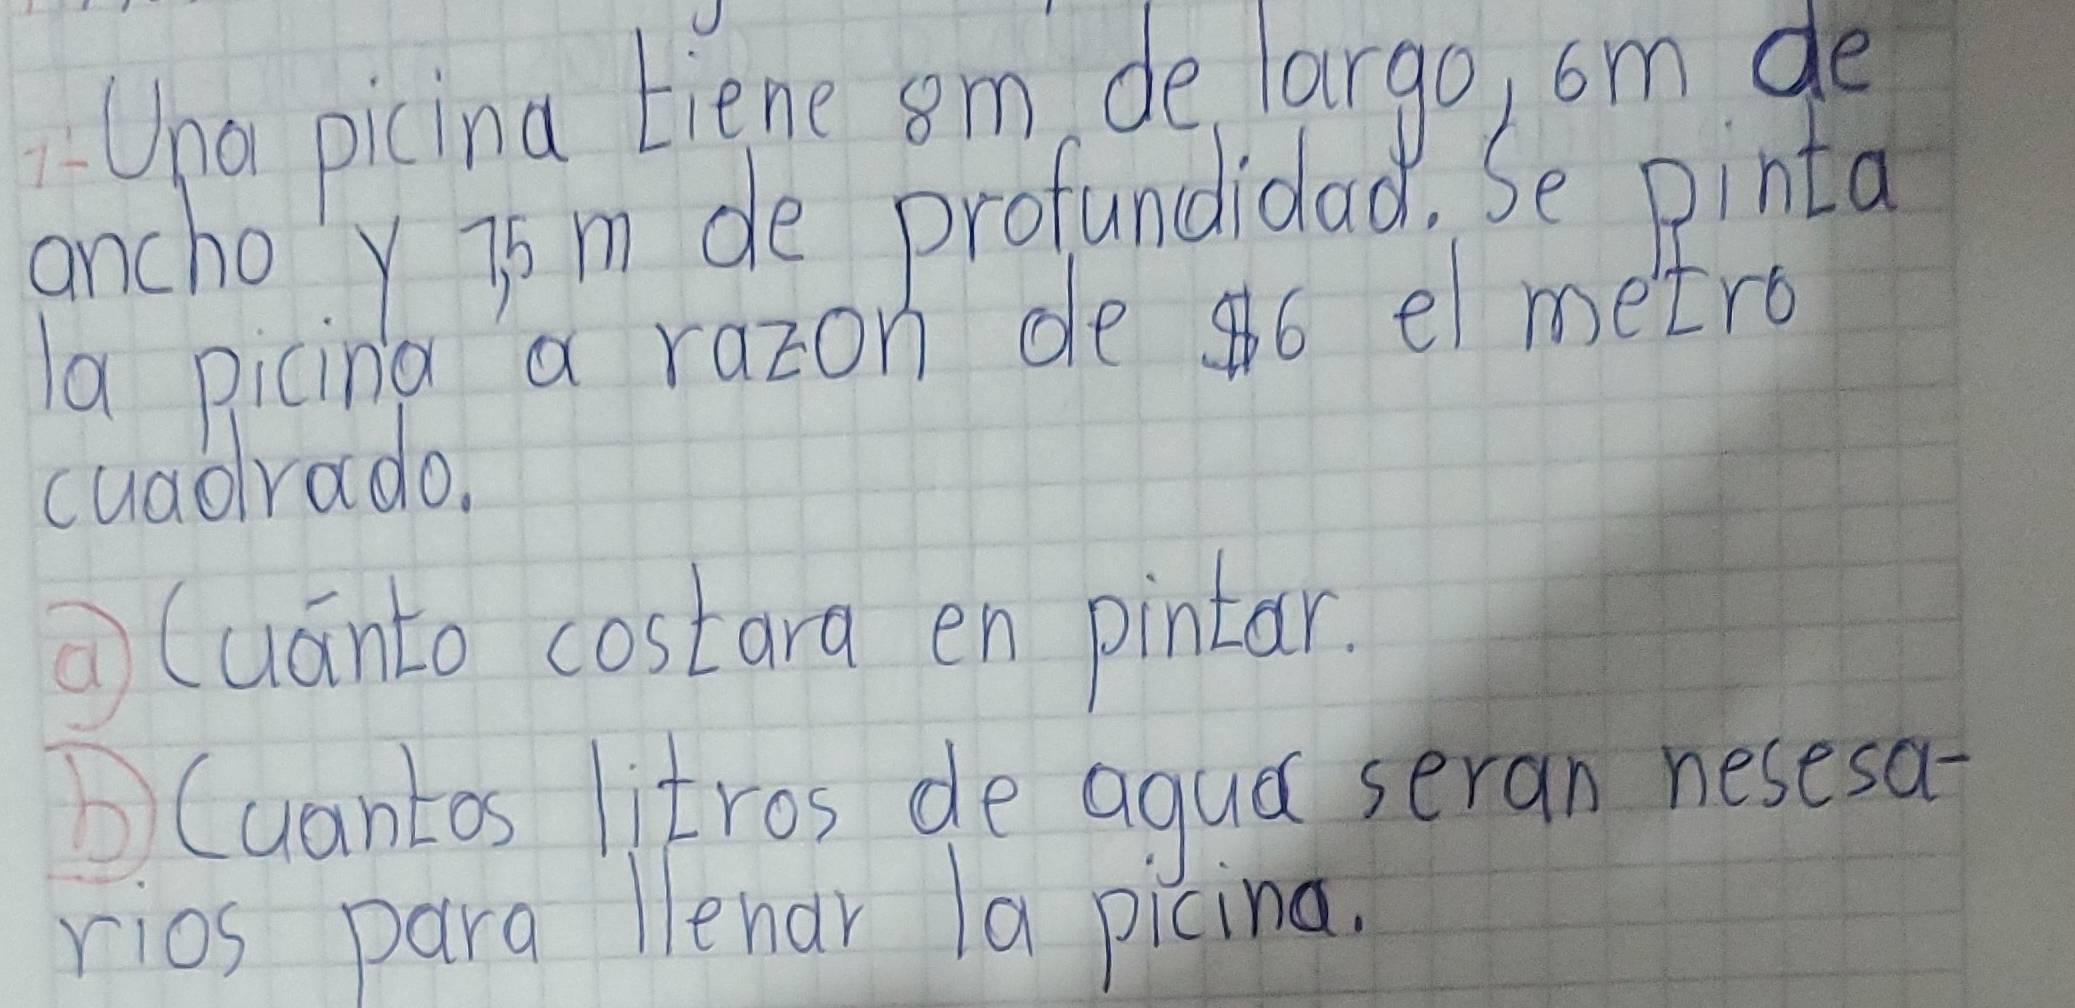 1- Una picina tiene 8m de largo, 6m de
ancho y 1,5 m de profundidad. Se pinta
la picina a razon de $6 el metro
cuadrado.
a) Cuánto costara en pintar.
b) Cuantos litros de agua seran nesesa-
rios para llenar la picina.